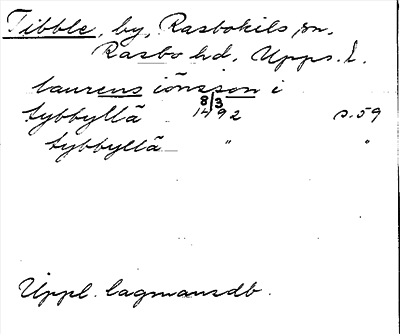 Tibble, by, Rasbokils sn.
Rasbo hd. Upps. l.
laurens iönsson i
tybbyllä 8/3 1492 s. 59
tybbyllä " "
Uppl. lagmansdb.